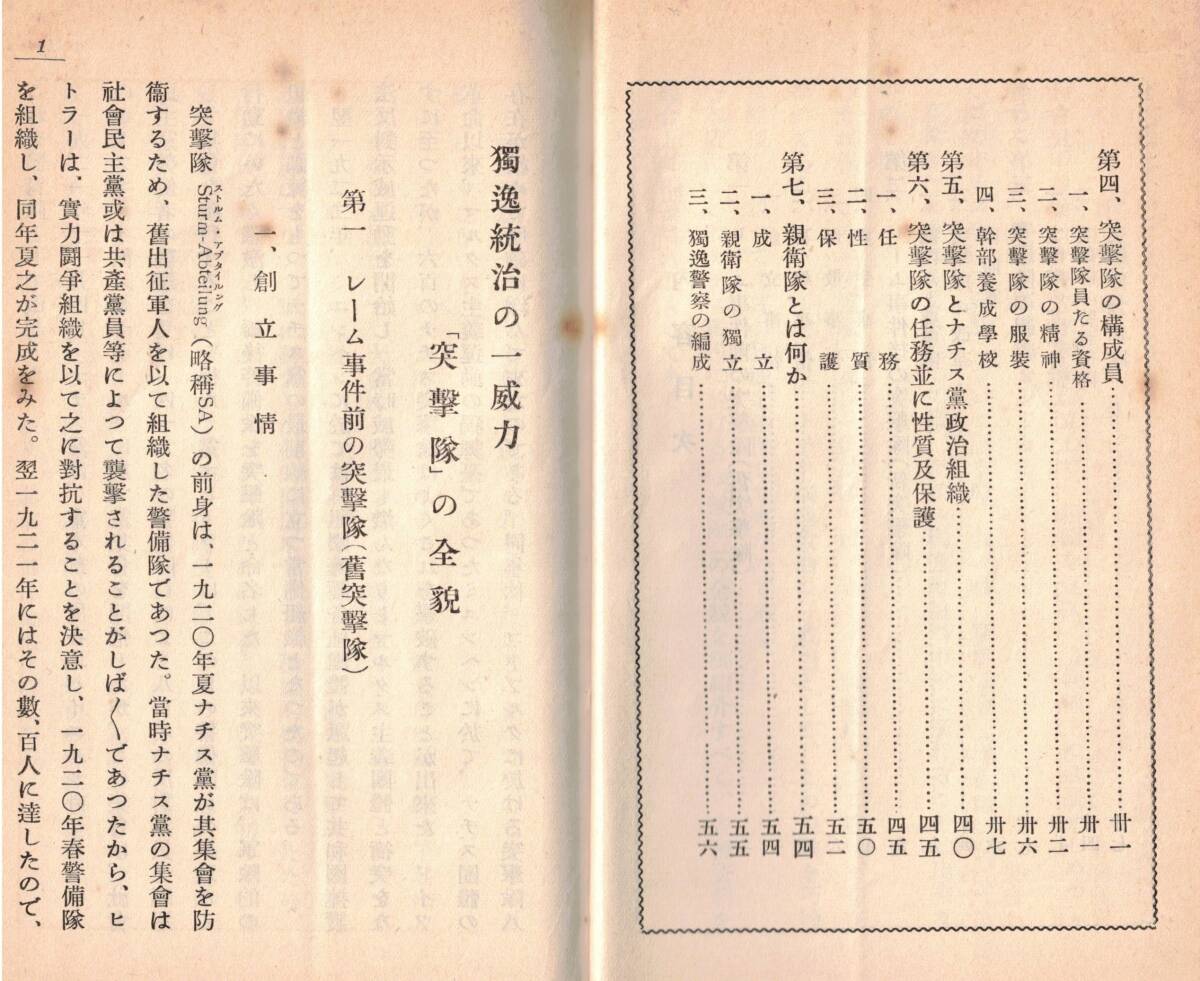 第四、突擊隊の構成員………卅一
一、突擊隊員たる資格………卅一
二、突擊隊の精神………卅二
三、突擊隊の服裝………卅六
四、幹部養成學校………卅七
第五、突擊隊とナチス黨政治組織………四〇
第六、突擊隊の任務並に性質及保護………四五
一、任務………四五
二、性質………五〇
三、保護………五二
第七、親衛隊とは何か………五四
一、成立………五四
二、親衛隊の獨立………五五
三、獨逸警察の編成………五六
1
獨逸統治の一威力
「突擊隊」の全貌
第一 レーム事件前の突擊隊(舊突擊隊)
一、創立事情
ストルム・アブタイルング
突擊隊 Sturm-Abteilung(略稱SA)の前身は、一九二〇年夏ナチス黨が其集會を防
衞するため、舊出征軍人を以て組織した警備隊であつた。當時ナチス黨の集會は
社會民主黨或は共產黨員等によつて襲擊されることがしば〳〵であつたから、ヒ
トラーは、實力鬪爭組織を以て之に對抗することを決意し、一九二〇年春警備隊
を組織し、同年夏之が完成をみた。翌一九二一年にはその數、百人に達したので、